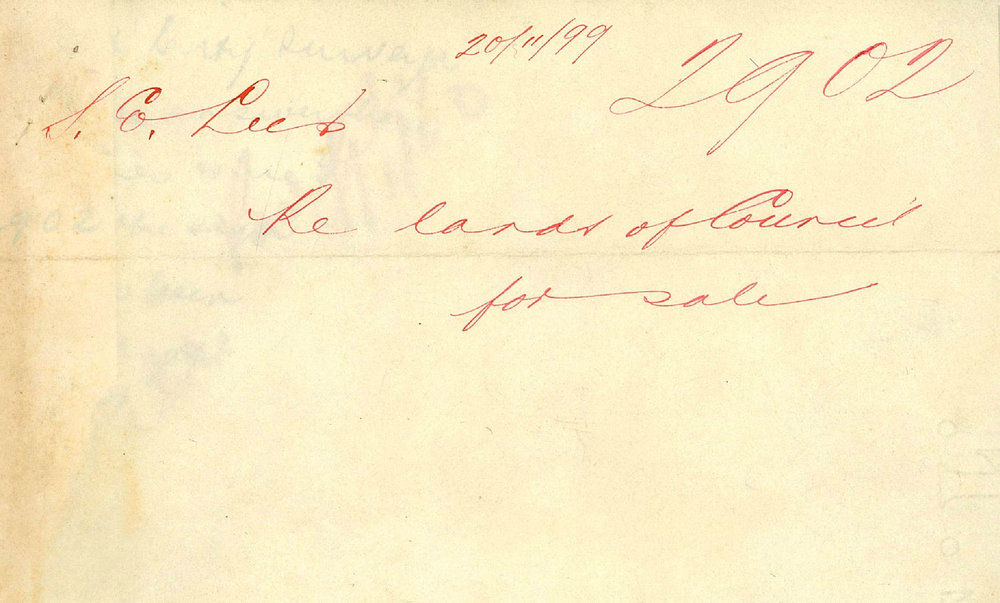 20/11/99
2902
S. E. Lees
Re lands of Council
for sale